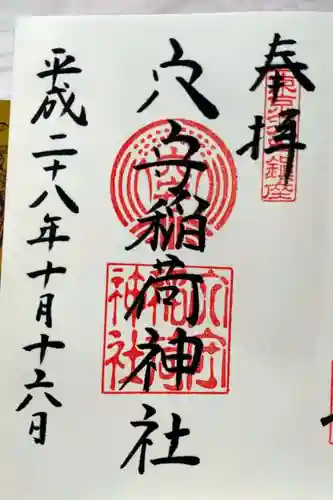 奉拝
東京 銀座
穴守稲荷神社
穴守稲荷神社
平成二十八年十月十六日